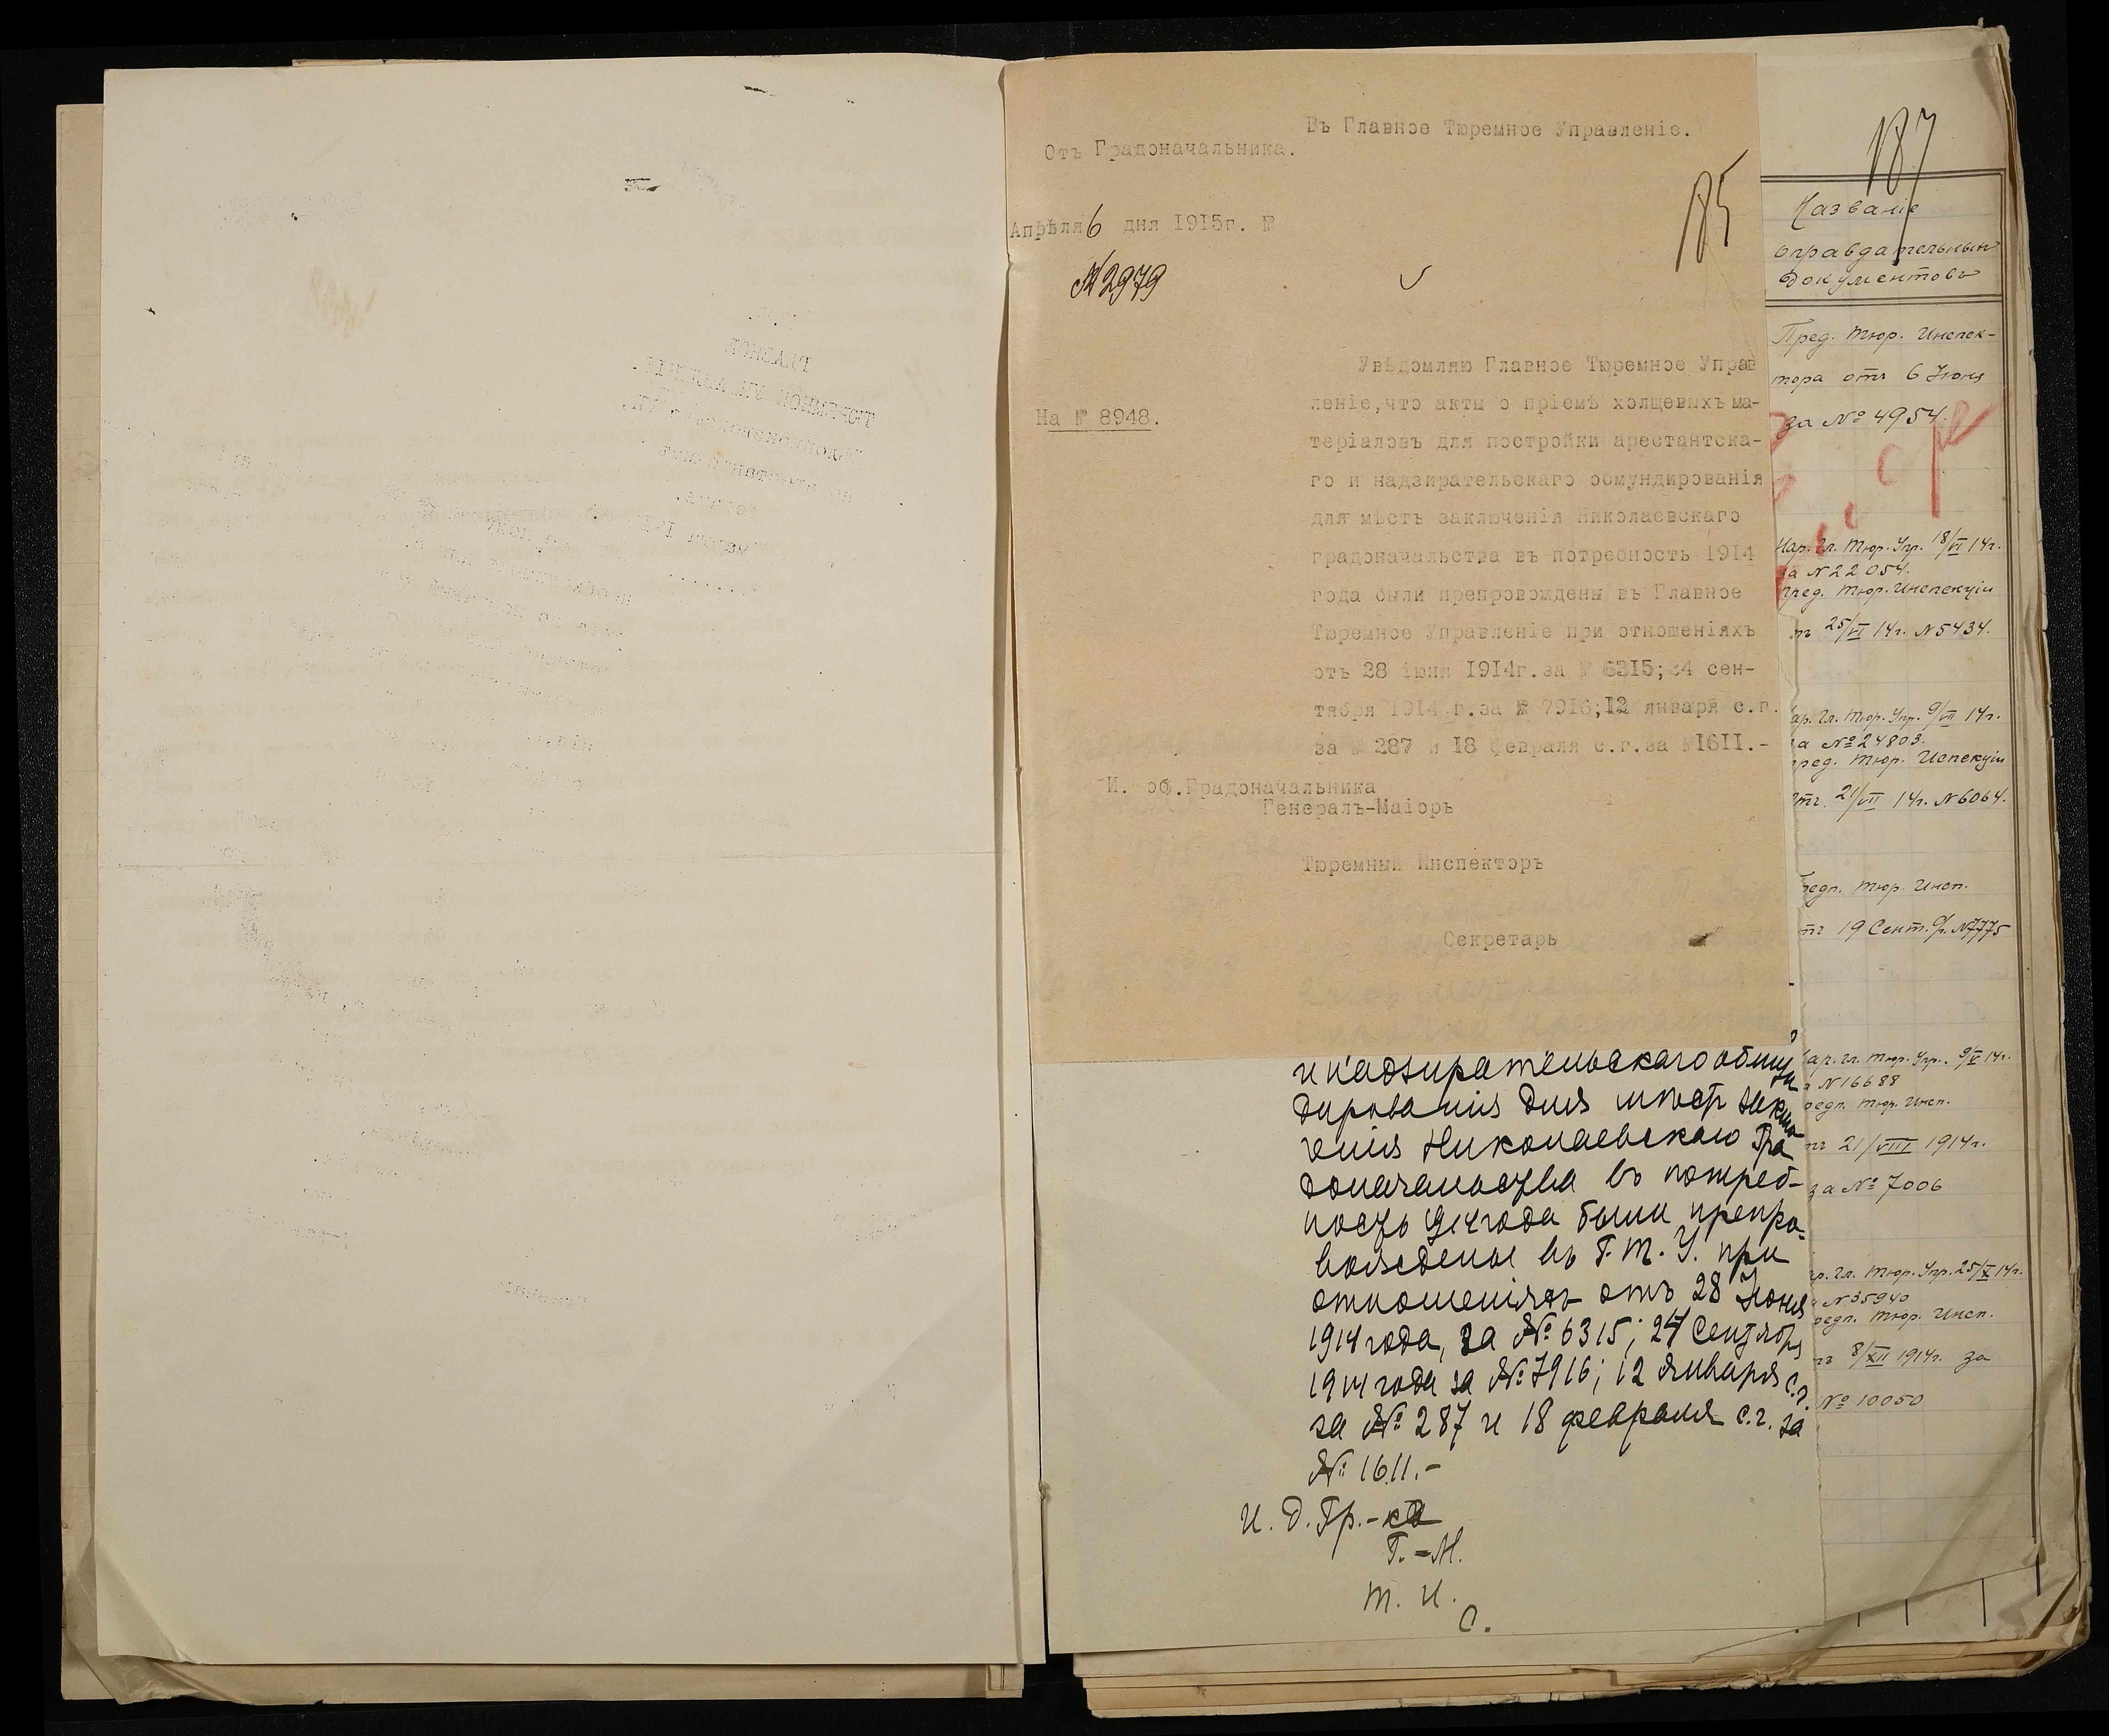 Въ Главное Тюремное Управленіе.
Отъ Градоначальника.
185
Апрѣля 6 дня 1915г. №
№ 2979
На № 8948.
Увѣдомляю Главное Тюремное Управ
леніе,что акты о пріемѣ холщевыхъ ма-
теріаловъ для постройки арестантска-
го и надзирательскаго обмундированія
для мѣстъ заключенія Николаевскаго
градоначальства въ потребность 1914
года были препровождены въ Главное
Тюремное Управленіе при отношеніяхъ
отъ 28 іюня 1914г.за № 6315;24 сен-
тября 1914 г.за № 7916;12 января с.г.
за № 287 и 18 февраля с.г.за №1611.-
И. об.Градоначальника
Генералъ-Маіоръ
Тюремный Инспекторъ
Секретарь
и надзирательскаго обмун
дированія для мѣстъ заклю
ченія Николаевскаго Гра
доначальства въ потреб-
ность 1914 года были препро-
вождены въ Г. Т. У. при
отношеніяхъ отъ 28 Іюня
1914 года, за № 6315; 24 Сентября
1914 года за № 7916; 12 Января с.г.
за № 287 и 18 февраля с.г. за
№ 1611.-
И. Д. Гр.-ка
Г.-М.
Т. И.
С.
187
Названіе
оправдательныхъ
документовъ
Пред. Тюр. Инспек-
тора отъ 6 Іюня
за № 4954.
Нар. Гл. Тюр. Упр. 18/VI 14г.
за № 22054.
Пред. Тюр. Инспекціи
25/VI 14г. № 5434.
Гл. Тюр. Упр. 9/VII 14г.
за № 24803.
Пред. Тюр. Испекціи
отъ 21/VII 14г. № 6064.
Тюр. Инсп.
19 Сент. № 7775
Гл. Тюр. Упр. 9/V 14г.
№ 16688
Тюр. Инсп.
21/VIII 1914г.
за № 7006
Гл. Тюр. Упр. 25/X 14г.
№ 35940
Тюр. Инсп.
8/XII 1914г. за
№ 10050